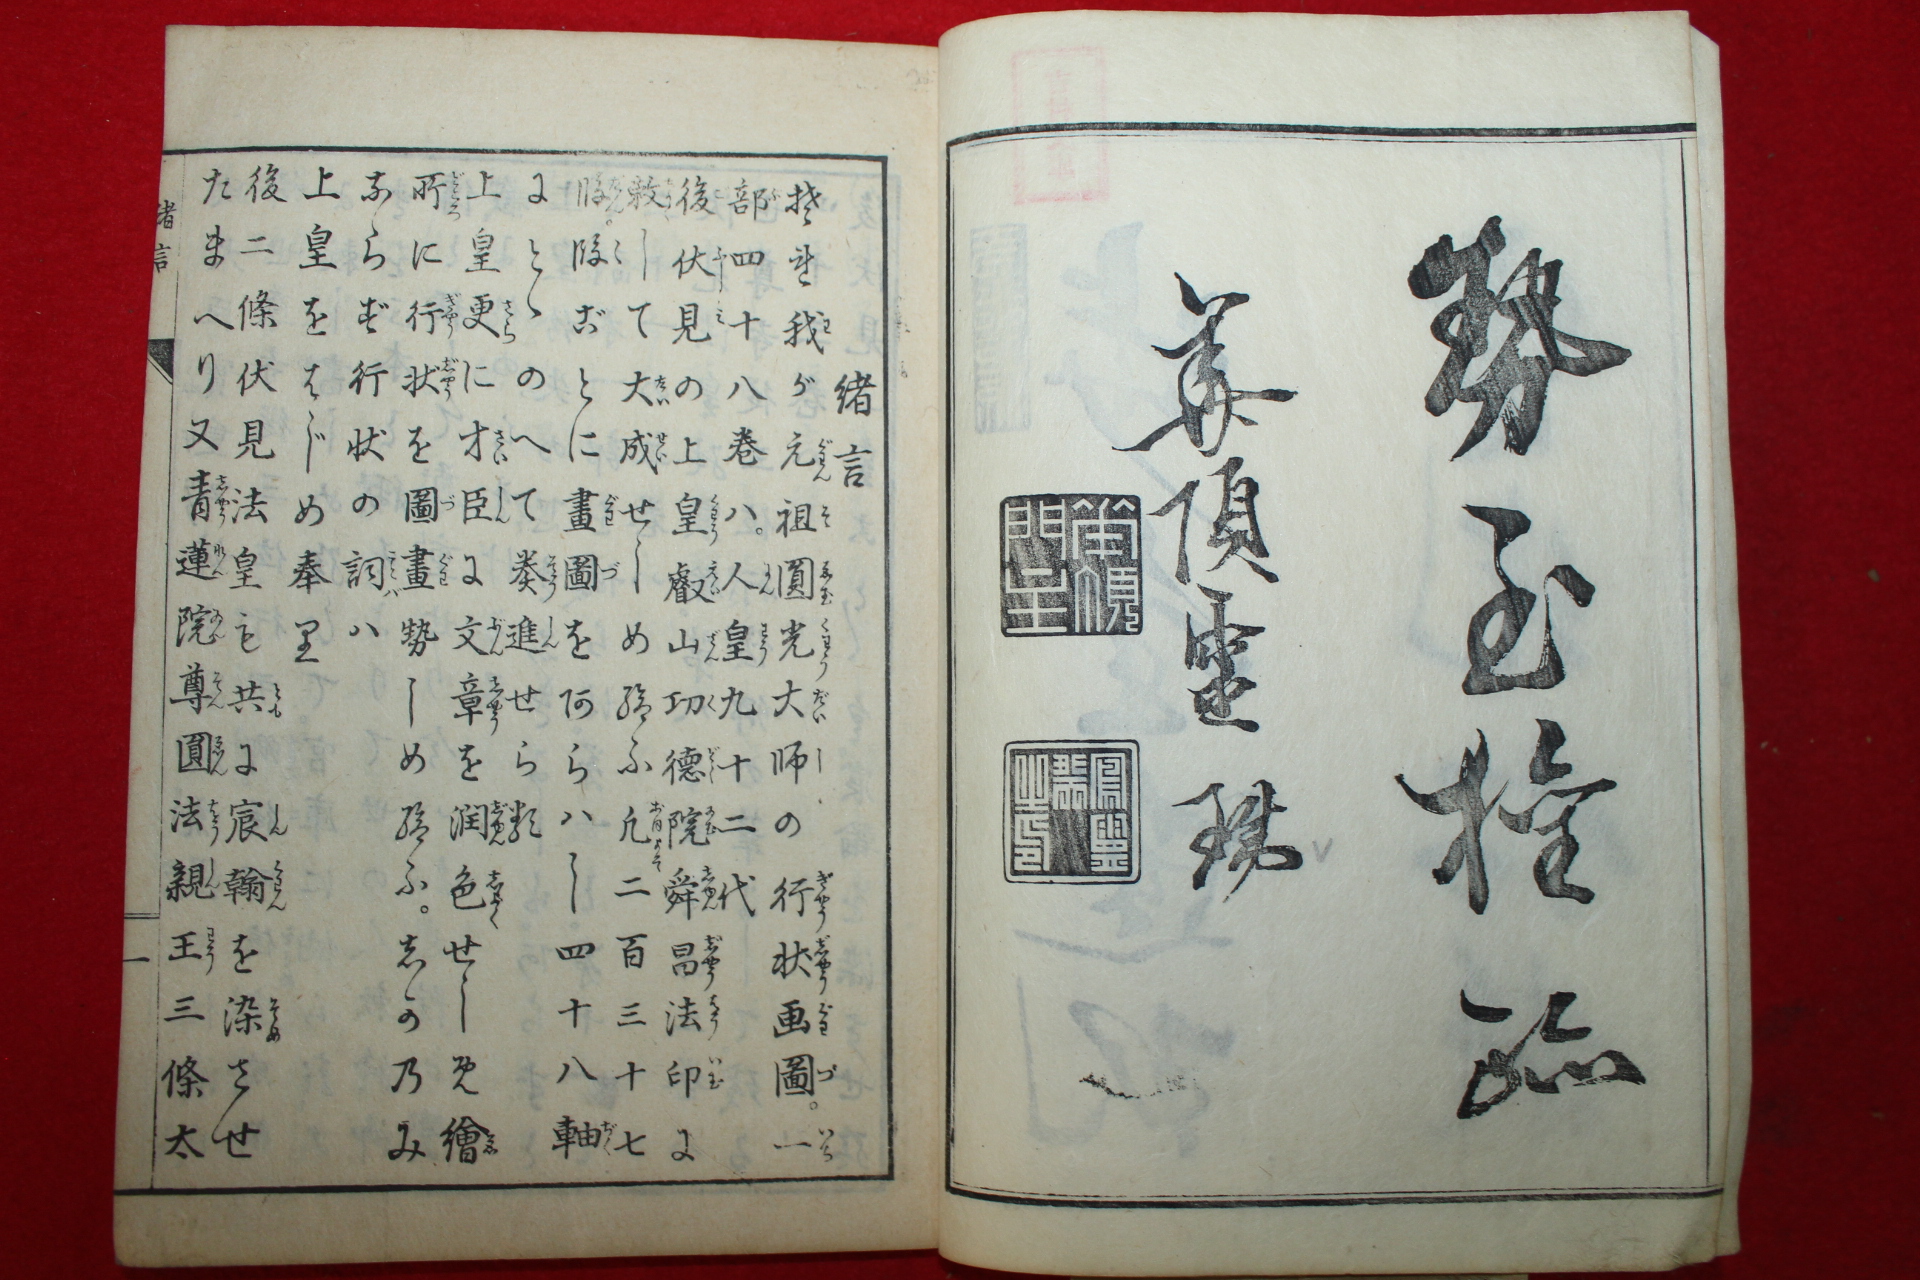 勢至權跡
華頂靈瑞
緒言
そも〳〵我が元祖圓光大師の行状画圖。一
部四十八巻ハ。人皇九十二代
後伏見の上皇叡山功德院舜昌法印に
敕して大成せしめ給ふ凡二百三十七
段。段ごとに畫圖を附らハし四十八軸
にとゝのへて奏進せら類
上皇更に才臣に文章を潤色せしめ繪
所に行状を圖畫勢しめ給ふ。しかのみ
ならず行状の詞ハ
上皇をはじめ奉里
後二條伏見法皇も共に宸翰を染させ
たまへり又青蓮院尊圓法親王三條太
緒言
一